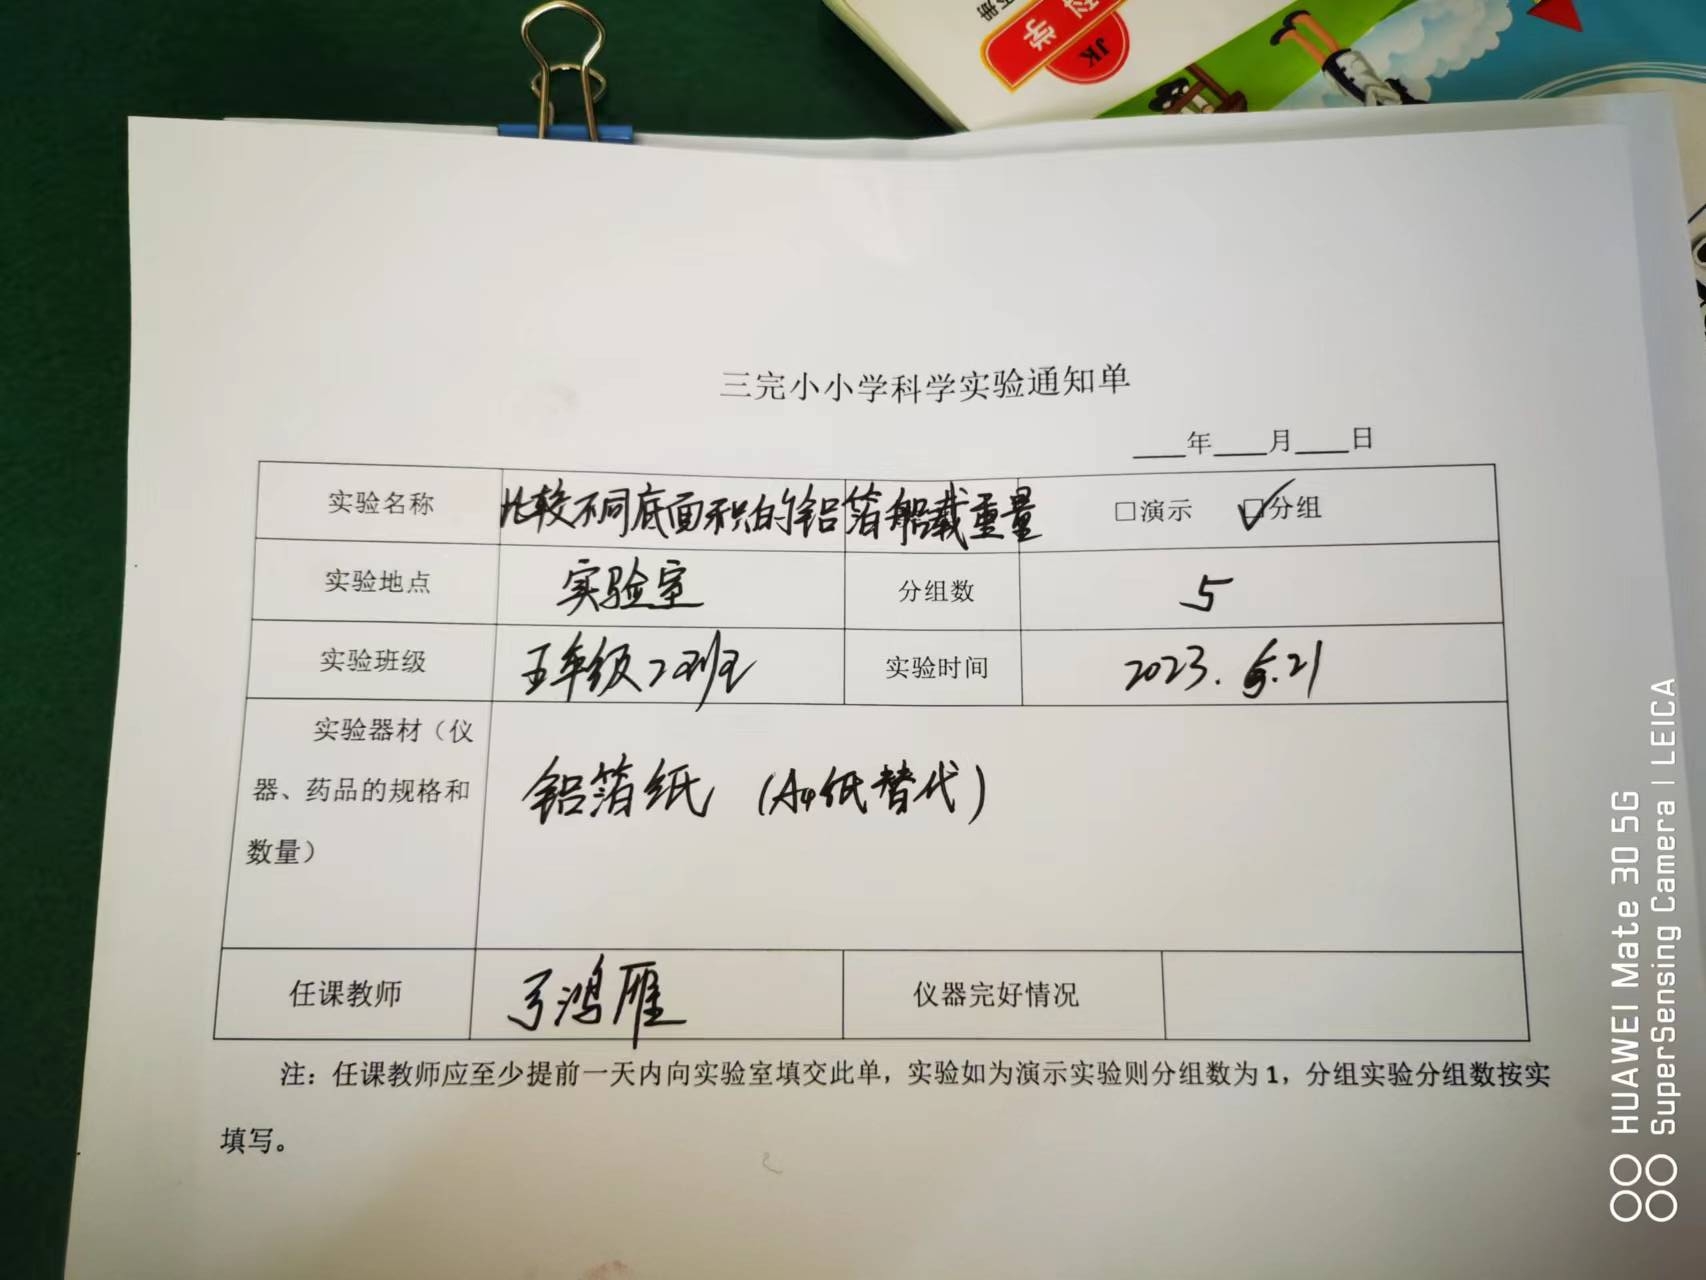 科学
JK
三完小小学科学实验通知单
____年____月____日
实验名称 比较不同底面积的铝箔船载重量 □演示 ☑分组
实验地点 实验室 分组数 5
实验班级 五年级2班 实验时间 2023.
实验器材（仪
器、药品的规格和
数量）
铝箔纸 (A4纸替代)
任课教师 弓鸿雁 仪器完好情况
注：任课教师应至少提前一天内向实验室填交此单，实验如为演示实验则分组数为1，分组实验分组数按实
填写。
HUAWEI Mate 30 5G
SuperSensing Camera | LEICA